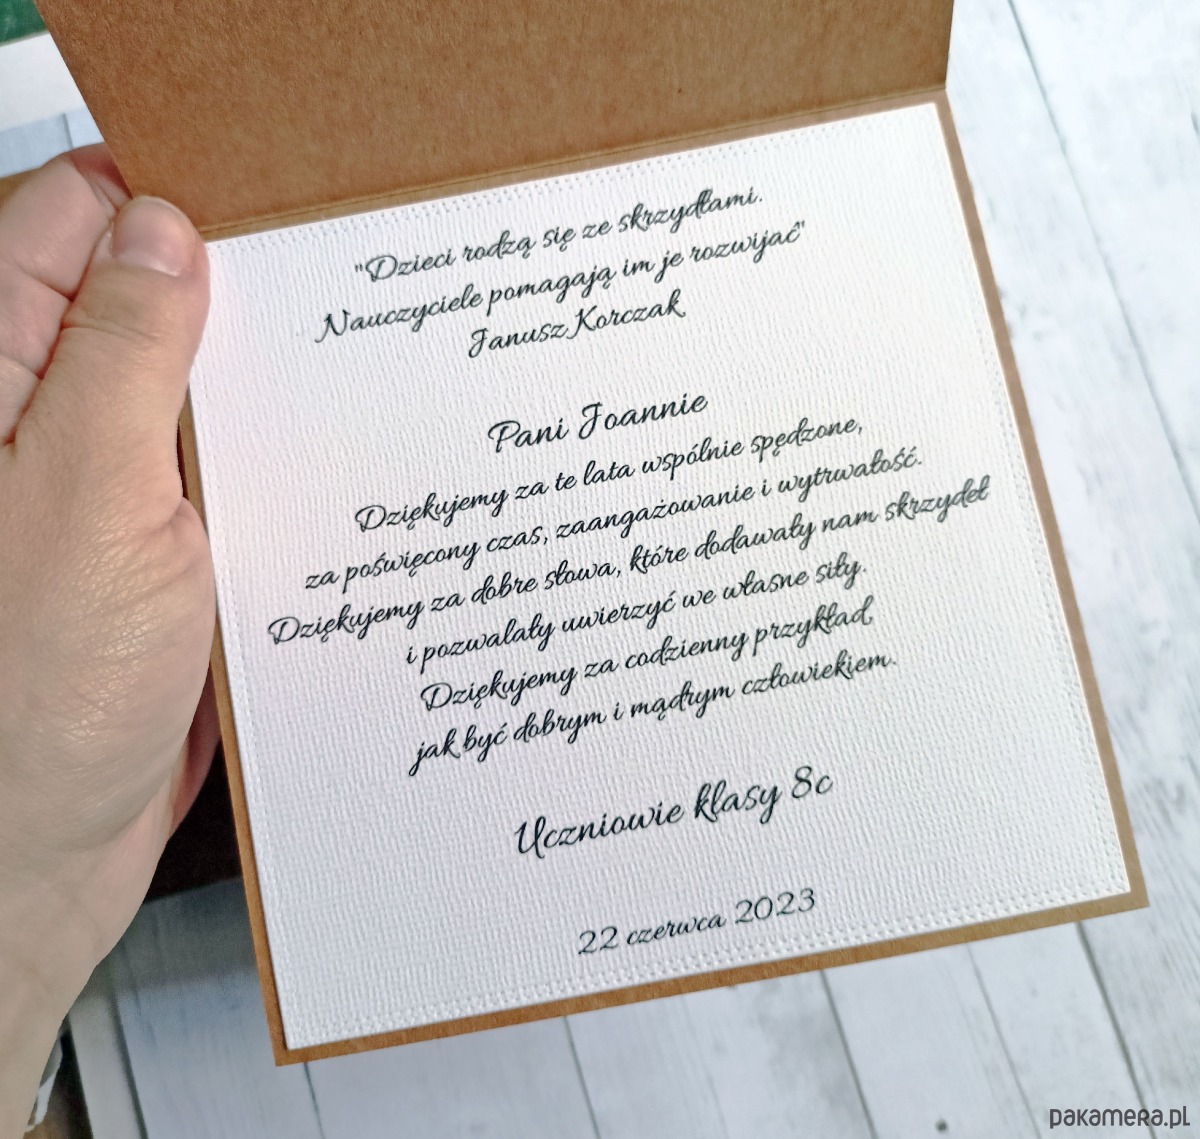 "Dzieci rodzą się ze skrzydłami.
Nauczyciele pomagają im je rozwijać"
Janusz Korczak
Pani Joannie
Dziękujemy za te lata wspólnie spędzone,
za poświęcony czas, zaangażowanie i wytrwałość.
Dziękujemy za dobre słowa, które dodawały nam skrzydeł
i pozwalały uwierzyć we własne siły.
Dziękujemy za codzienny przykład,
jak być dobrym i mądrym człowiekiem.
Uczniowie klasy 8c
22 czerwca 2023
pakamera.pl